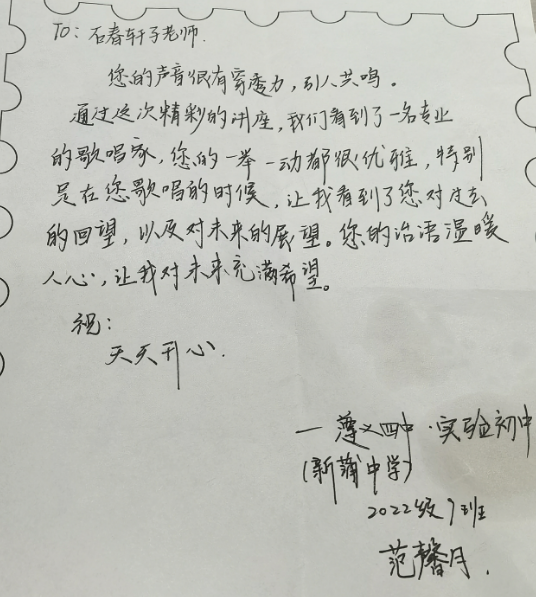 TO: 石春轩子老师.
您的声音很有穿透力,引人共鸣。
通过这次精彩的讲座,我们看到了一名专业
的歌唱家,您的一举一动都很优雅,特别
是在您歌唱的时候,让我看到了您对过去
的回望,以及对未来的展望。您的话语温暖
人心,让我对未来充满希望。
祝:
天天开心.
一遵义四中·实验初中
(新蒲中学)
2022级7班
范馨月.